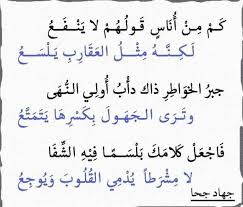 كَمْ مِنْ أُنَاسٍ قَولُهُمْ لا يَنْفَعُ
لَكِنَّهُ مِثْلُ العَقَارِبِ يَلْسَعُ
جبرُ الخَوَاطِرِ ذاك دأبُ أُولِي النُّهَى
وتَرَى الجَهُولَ بِكَسْرِهَا يَتَمَتَّعُ
فَاجْعَلْ كلامَكَ بَلْسَمًا فِيْهِ الشِّفَا
لا مِشْرَطاً يُدْمِي القُلُوبَ وَيُوجِعُ
جهاد جحا